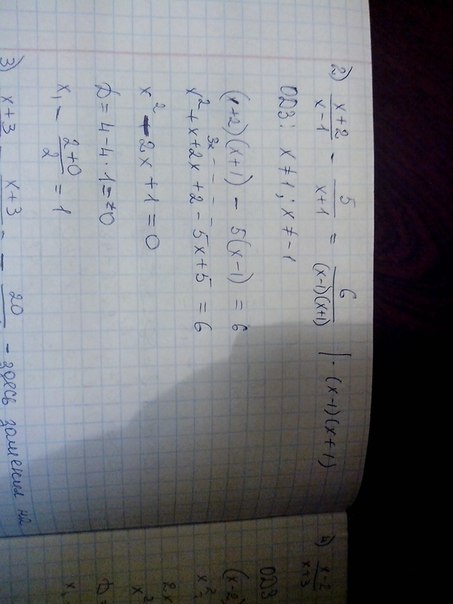 2) \frac{x+2}{x-1} - \frac{5}{x+1} = \frac{6}{(x-1)(x+1)} | · (x-1)(x+1)
ОДЗ: x ≠ 1; x ≠ -1
(x+2)(x+1) - 5(x-1) = 6
3x
x² + x + 2x + 2 - 5x + 5 = 6
x² - 2x + 1 = 0
D = 4 - 4·1 = 0
x₁ = \frac{2+0}{2} = 1
3) x+3 - x+3 = 20 - здесь заменил на
4) \frac{x-2}{x+3}
ОДЗ
(x-2
x²
2x
x²
D=
x₁